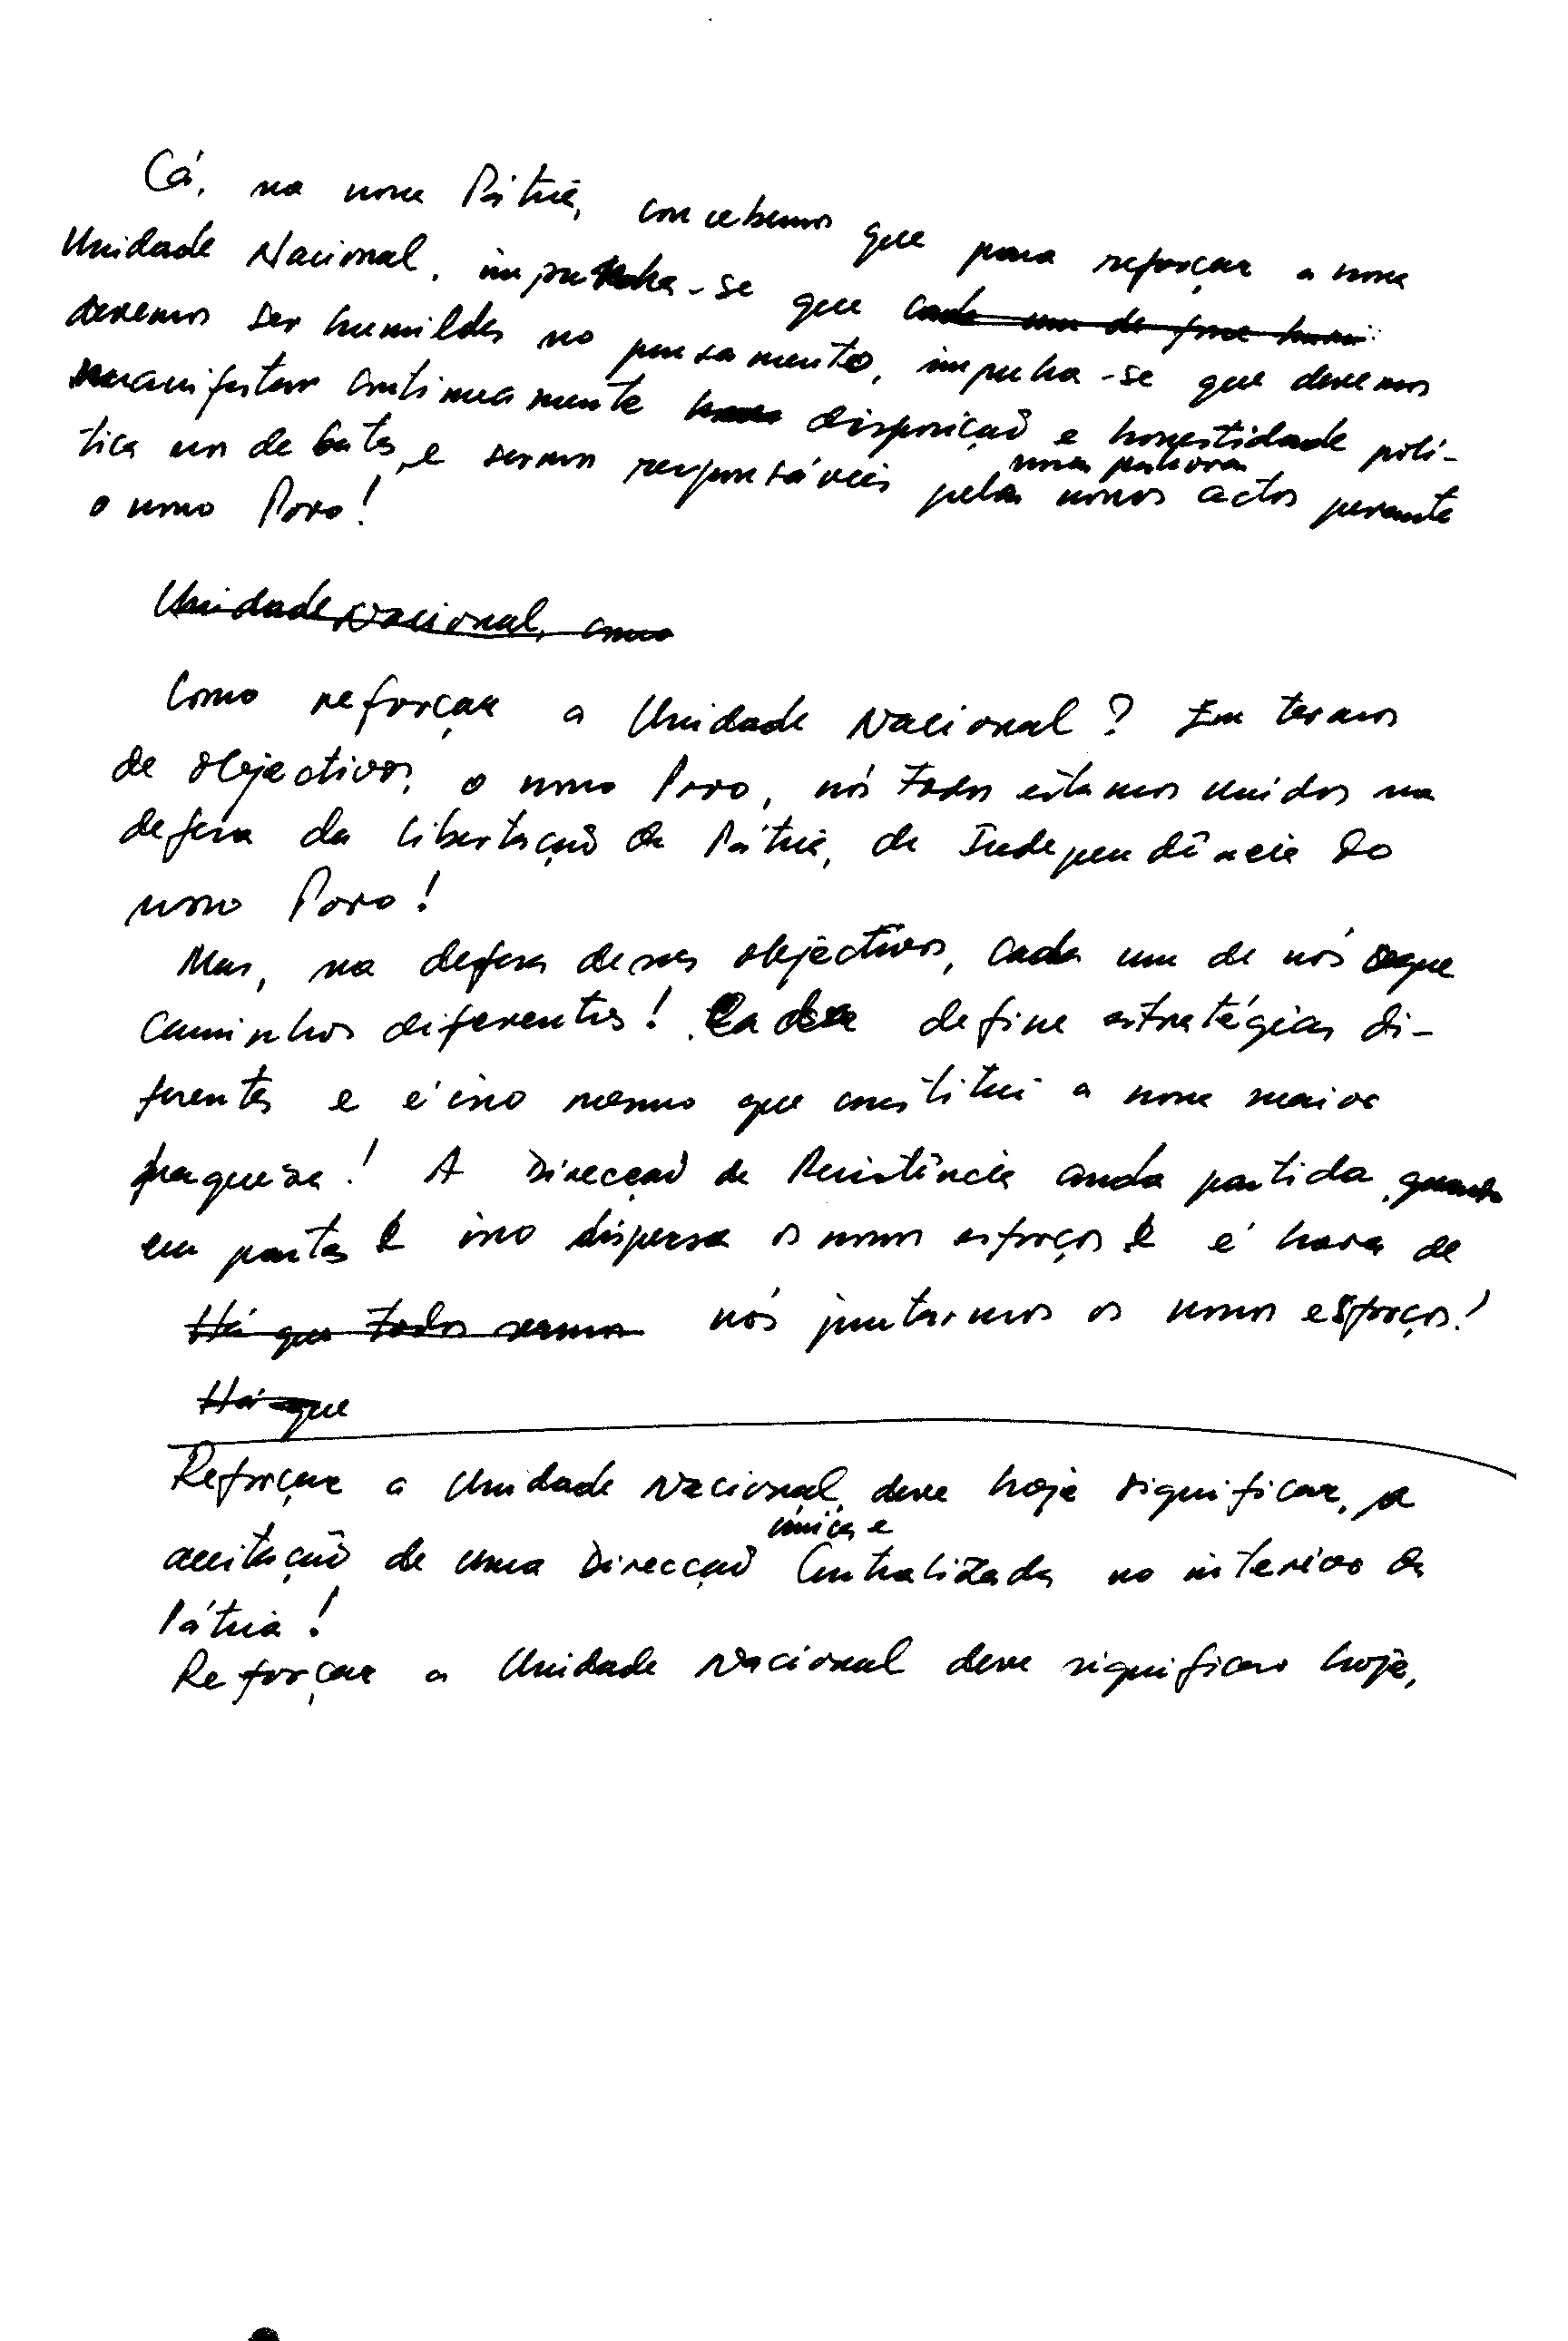 Cá, na nossa Pátria, concebemos que para reforçar a nossa
Unidade Nacional, impunha-se que cada um de
devemos ser humildes no pensamento, impunha-se que devemos
manifestar continuamente disposição e honestidade polí-
tica nos debates, e sermos responsáveis pelas nossos actos perante
nossas palavras
o nosso Povo!
Unidade Nacional, como
Como reforçar a Unidade Nacional? Em termos
de objectivos, o nosso Povo, nós todos estamos unidos na
defesa da libertação da Pátria, da Independência do
nosso Povo!
Mas, na defesa desses objectivos, cada um de nós segue
caminhos diferentes! Cada define estratégias di-
ferentes e é isso mesmo que constitui a nossa maior
fraqueza! A Direcção da Resistência anda partida
em partes e isso dispersa os nossos esforços e é hora de
Há que todos sermos nós juntarmos os nossos esforços!
Há que
Reforçar a Unidade Nacional, deve hoje significar, a
única e
aceitação de uma Direcção Centralizada no interior da
Pátria!
Reforçar a Unidade Nacional deve significar hoje,